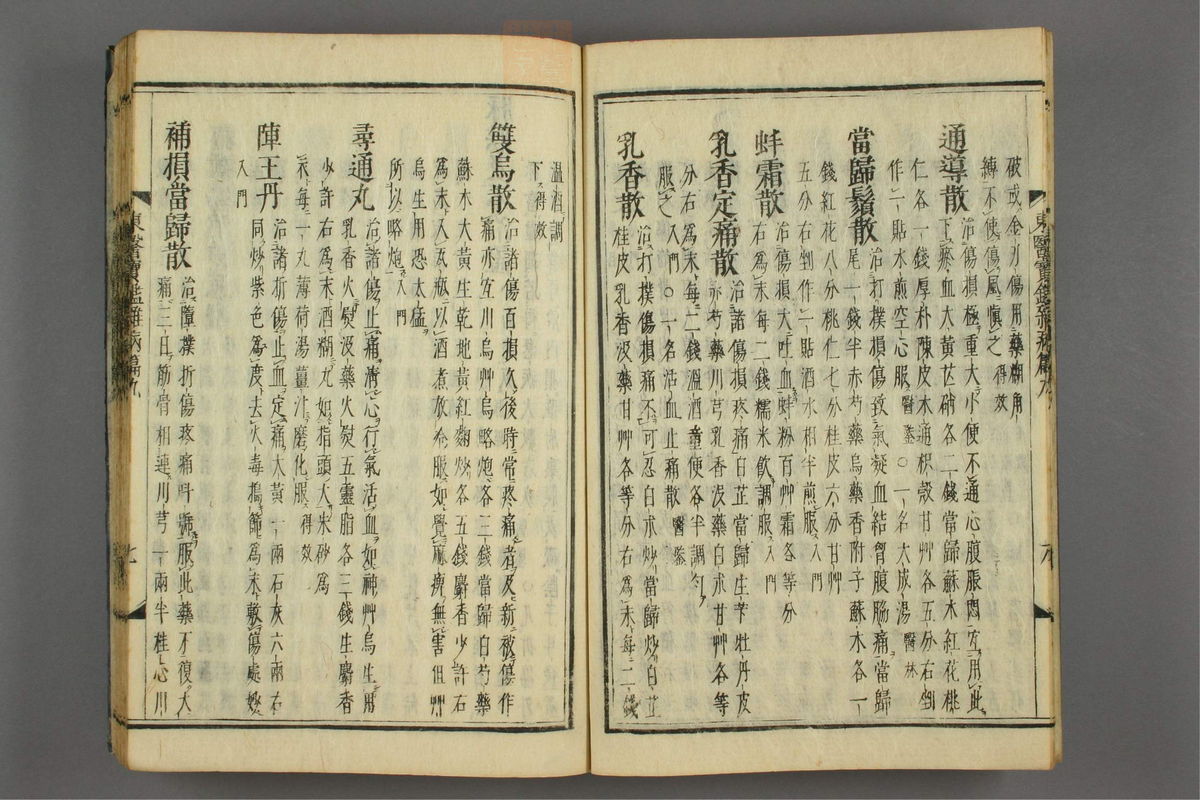 破或金刃傷用藥糊角
縛不使傷風愼之得效
通導散 治傷損極重大小便不通心腹脹悶宜用此
下瘀血大黃芒硝各二錢當歸蘇木紅花桃
仁各一錢厚朴陳皮木通枳殼甘艸各五分右剉
作一貼水煎空心服醫鑒○一名大成湯醫林
當歸鬚散 治打撲損傷致氣凝血結胷腹脇痛當歸
尾一錢半赤芍藥烏藥香附子蘇木各一
錢紅花八分桃仁七分桂皮六分甘艸
五分右剉作一貼酒水相半煎服入門
蚌霜散 治傷損大吐血蚌粉百艸霜各等分
右爲末每二錢糯米飮調服入門
乳香定痛散 治諸傷損疼痛白芷當歸生芐牡丹皮
赤芍藥川芎乳香沒藥白朮甘艸各等
分右爲末每二錢溫酒童便各半調勻
服之入門○一名活血止痛散醫鑒
乳香散 治打撲傷損痛不可忍白朮炒當歸炒白芷
桂皮乳香沒藥甘艸各等分右爲末每二錢
東醫寶鑑雜病篇九
溫酒調
下得效
雙烏散 治諸傷百損久後時常疼痛者及新被傷作
痛亦宜川烏艸烏略炮各三錢當歸白芍藥
蘇木大黃生乾地黃紅麴炒各五錢麝香少許右
爲末入瓦瓶以酒煮放冷服如覺麻痺無害但艸
烏生用恐太猛
所以略炮入門
尋通丸 治諸傷止痛淸心行氣活血如神艸烏生用
乳香火熨沒藥火熨五靈脂各三錢生麝香
少許右爲末酒糊丸如指頭大朱砂爲
衣每一丸薄荷湯薑汁磨化服得效
陣王丹 治諸折傷止血定痛大黃一兩石灰六兩右
同炒紫色爲度去火毒搗篩爲末敷傷處妙
入門
補損當歸散 治墮撲折傷疼痛呌號服此藥不復大
痛三日筋骨相連川芎一兩半桂心川
東醫寶鑑雜病篇九
七